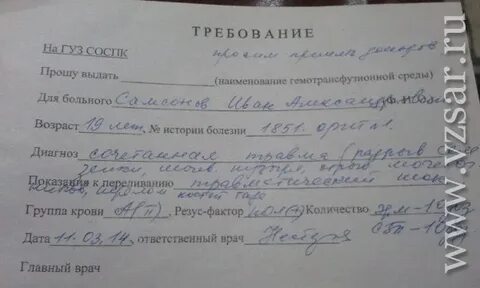 ТРЕБОВАНИЕ
На ГУЗ СОСПК просим принять доноров
Прошу выдать
(наименование гемотрансфузионной среды)
Для больного Самсонов Иван Александр Ф.И.О.
Возраст 19 лет. № истории болезни 1851.
Диагноз сочетанная травма (разрыв
Показания к переливанию травматический шок
костей таза
Группа крови A(II) Резус-фактор пол(+) Количество
Дата 11.03.14, ответственный врач
Главный врач
www.vzsar.ru